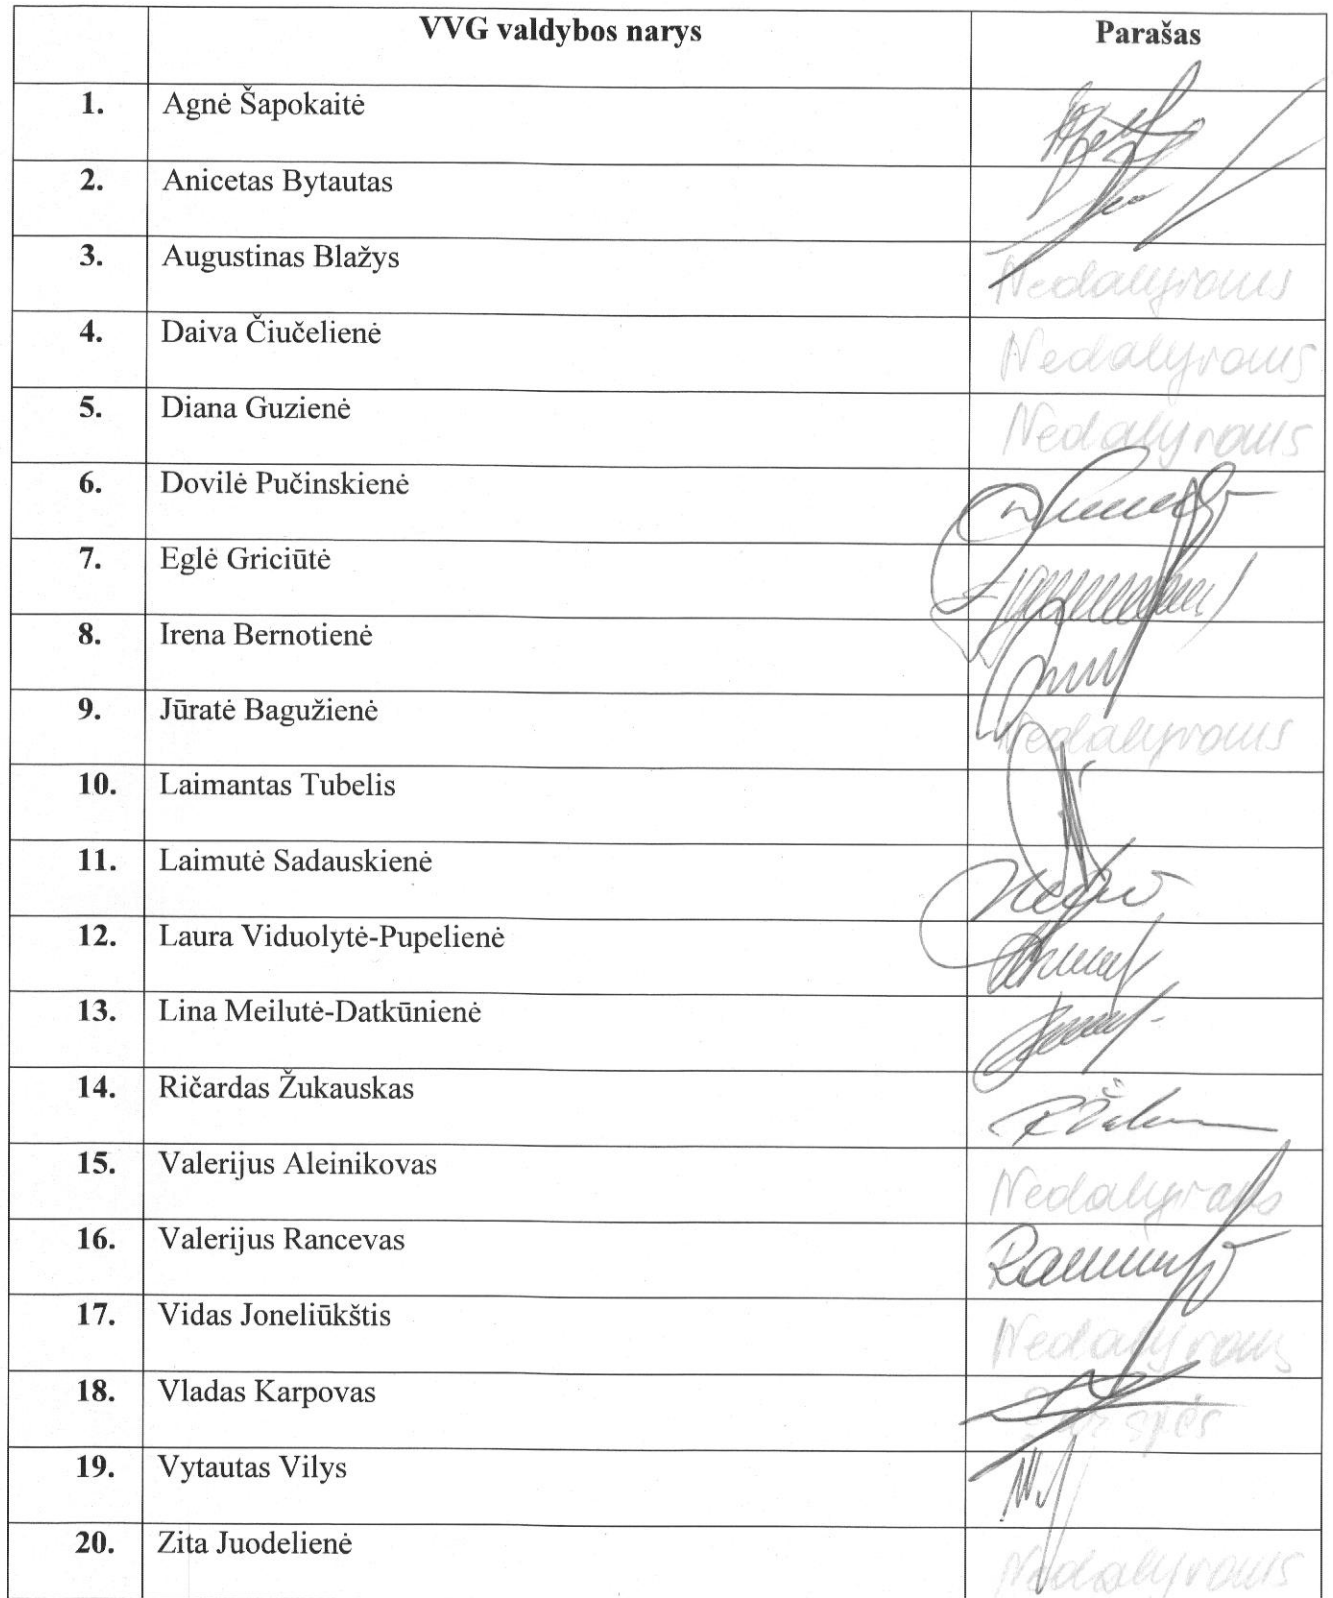 VVG valdybos narys Parašas
1. Agnė Šapokaitė
2. Anicetas Bytautas
3. Augustinas Blažys Nedalyvaus
4. Daiva Čiučelienė Nedalyvaus
5. Diana Guzienė Nedalyvaus
6. Dovilė Pučinskienė
7. Eglė Griciūtė
8. Irena Bernotienė
9. Jūratė Bagužienė Nedalyvaus
10. Laimantas Tubelis
11. Laimutė Sadauskienė
12. Laura Viduolytė-Pupelienė
13. Lina Meilutė-Datkūnienė
14. Ričardas Žukauskas
15. Valerijus Aleinikovas
16. Valerijus Rancevas
17. Vidas Joneliūkštis Nedalyvaus
18. Vladas Karpovas
19. Vytautas Vilys
20. Zita Juodelienė Nedalyvaus